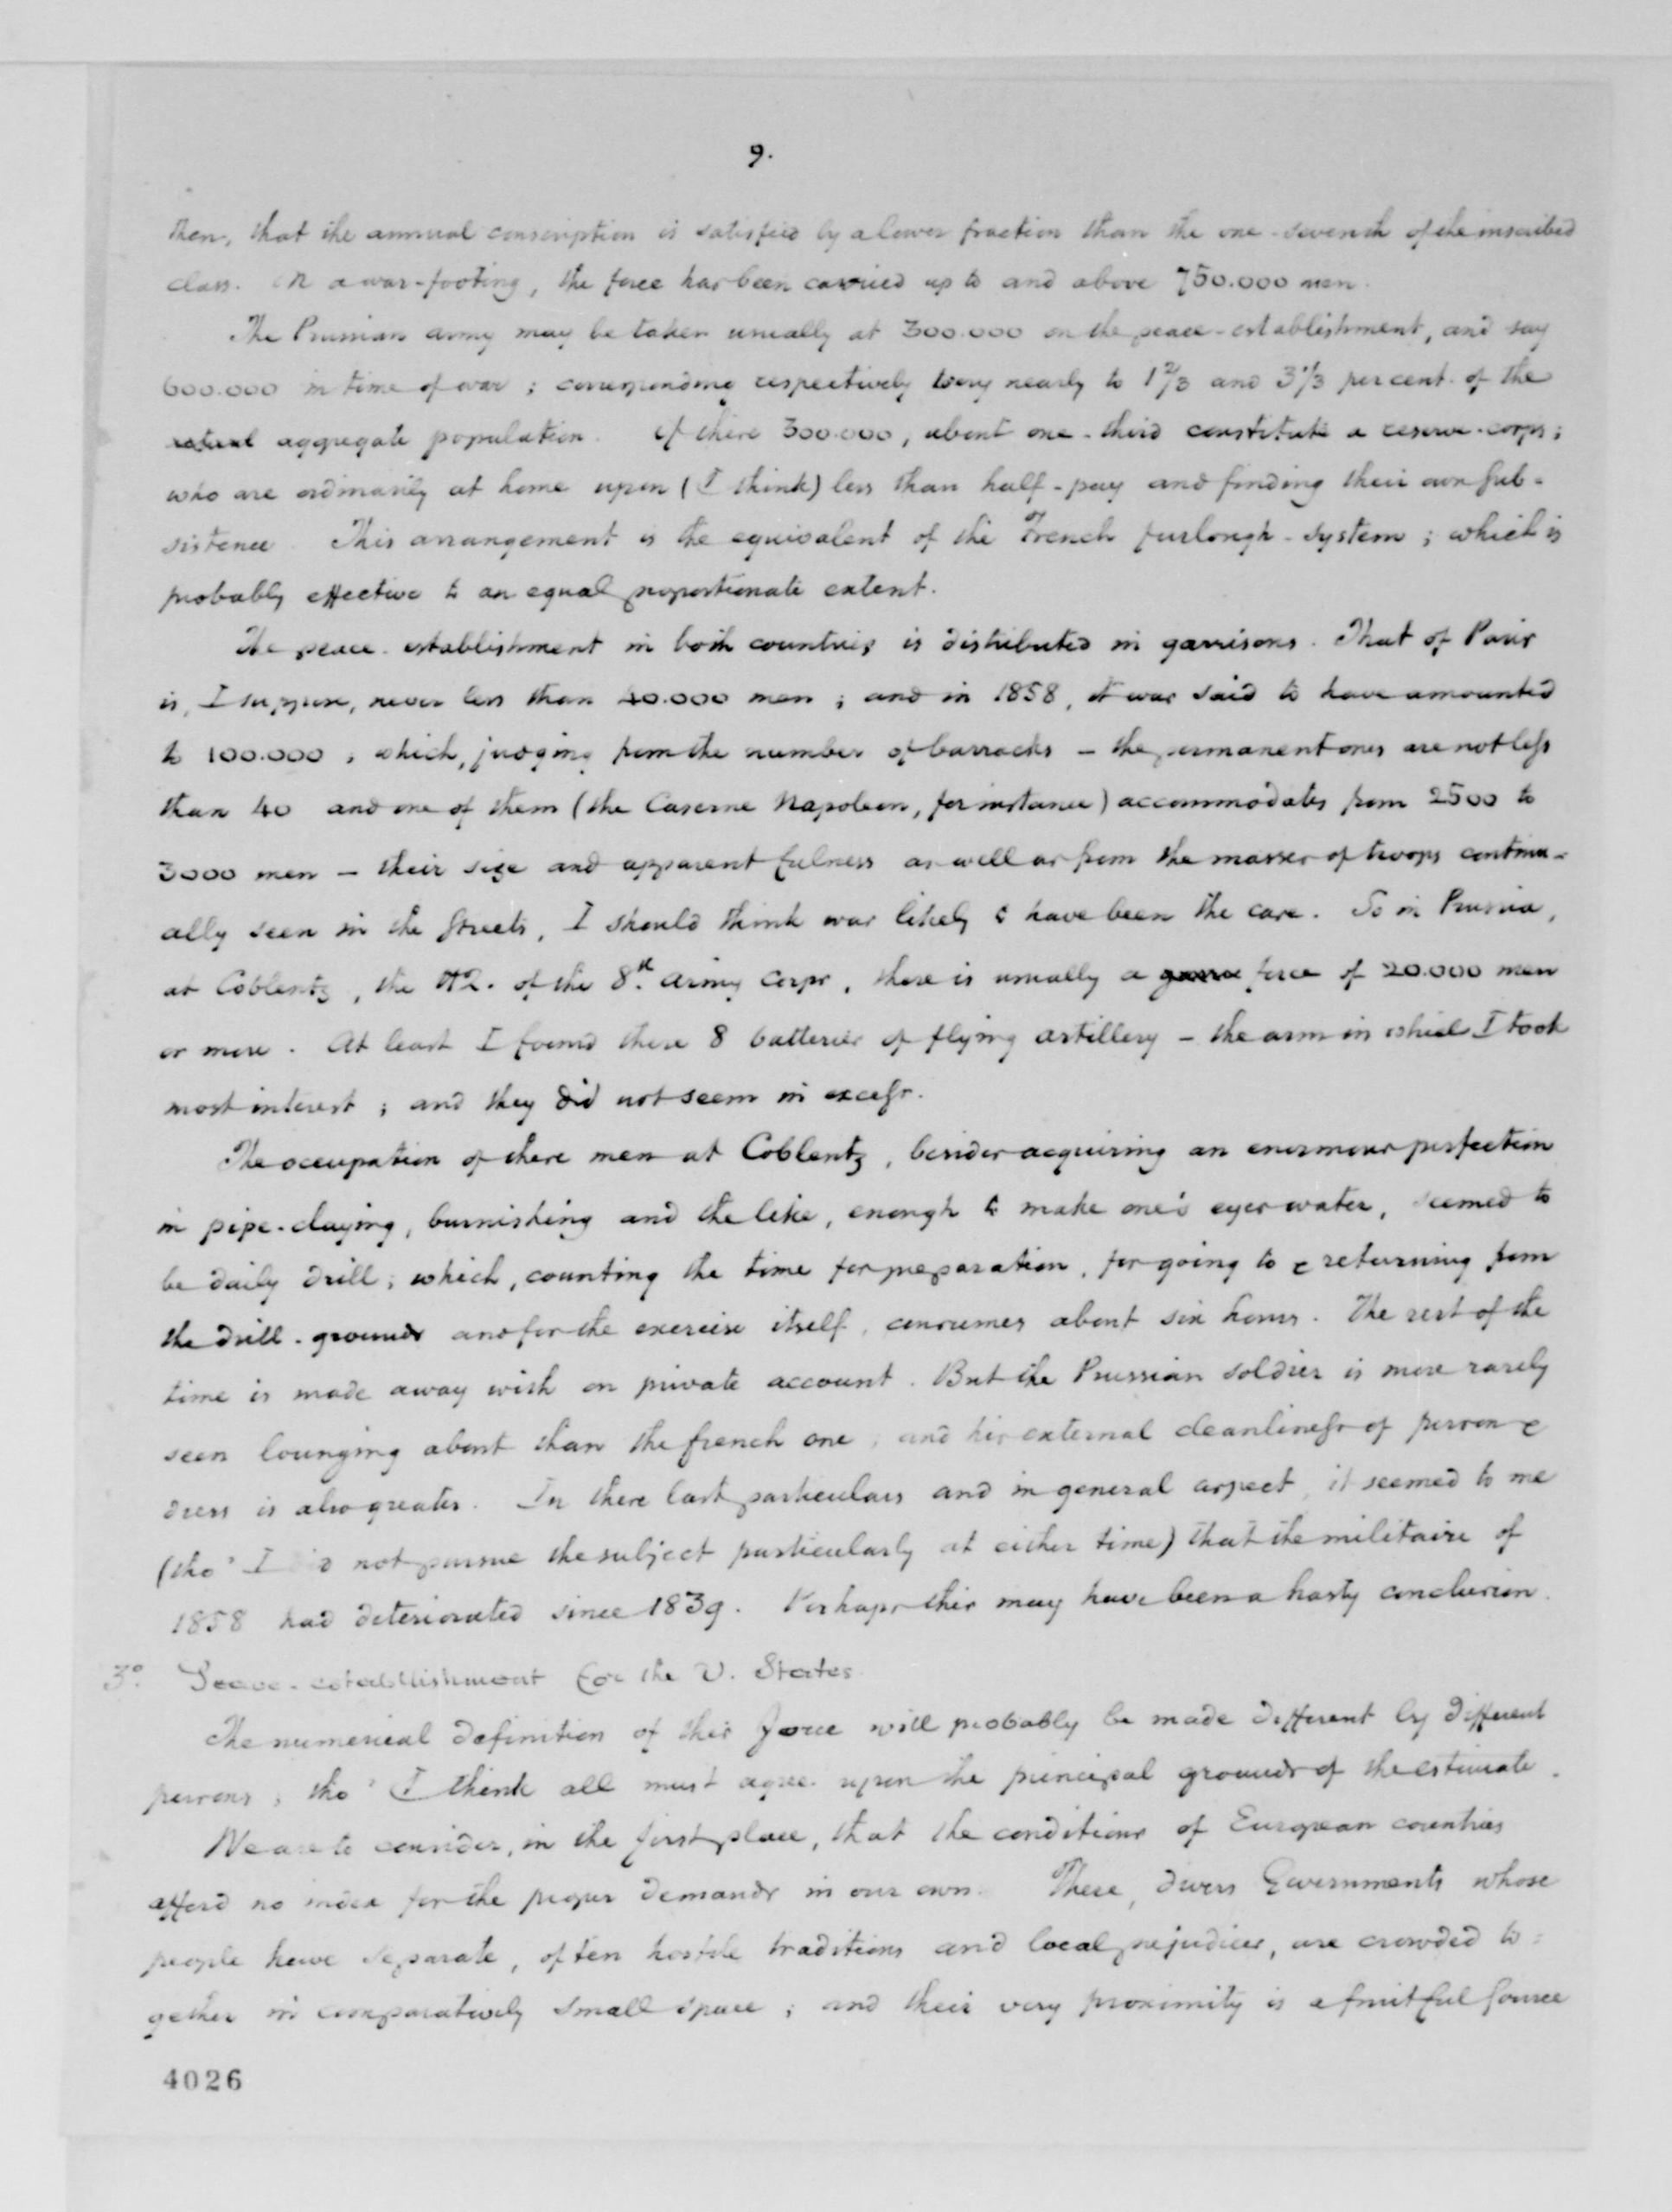 9.
then, that the annual conscription is satisfied by a lower fraction than the one-seventh of the inscribed
class. On a war-footing, the force has been carried up to and above 750.000 men.
The Prussian army may be taken usually at 300.000 on the peace-establishment, and say
600.000 in time of war; corresponding respectively very nearly to 1 2/3 and 3 1/3 per cent. of the
actual aggregate population. Of these 300.000, about one-third constitute a reserve-corps;
who are ordinarily at home upon (I think) less than half-pay and finding their own sub-
sistence. This arrangement is the equivalent of the French furlough-system; which is
probably effective to an equal proportionate extent.
The peace-establishment in both countries is distributed in garrisons. That of Paris
is, I suppose, never less than 40.000 men; and in 1858, it was said to have amounted
to 100.000; which, judging from the number of barracks – the permanent ones are not less
than 40 and one of them (the Caserne Napoleon, for instance) accommodates from 2500 to
3000 men – their size and apparent fulness as well as from the masses of troops continu-
ally seen in the streets, I should think was likely to have been the case. So in Prussia,
at Coblentz, the HQ. of the 8th. Army Corps, there is usually a force of 20.000 men
or more. At least I found there 8 batteries of flying artillery – the arm in which I took
most interest; and they did not seem in excess.
The occupation of these men at Coblentz, besides acquiring an enormous perfection
in pipe-claying, burnishing and the like, enough to make one's eyes water, seemed to
be daily drill; which, counting the time for preparation, for going to & returning from
the drill-grounds and for the exercise itself, consumes about six hours. The rest of the
time is made away with on private account. But the Prussian soldier is more rarely
seen lounging about than the french one; and his external cleanliness of person &
dress is also greater. In these last particulars and in general aspect, it seemed to me
(tho' I did not pursue the subject particularly at either time) that the militaire of
1858 had deteriorated since 1839. Perhaps this may have been a hasty conclusion.
3o. Peace-establishment for the U. States
The numerical definition of this force will probably be made different by different
persons; tho' I think all must agree upon the principal grounds of the estimate.
We are to consider, in the first place, that the conditions of European countries
afford no index for the proper demands in our own. There, divers Governments whose
people have separate, often hostile traditions and local prejudices, are crowded to-
gether in comparatively small space; and their very proximity is a fruitful source
4026